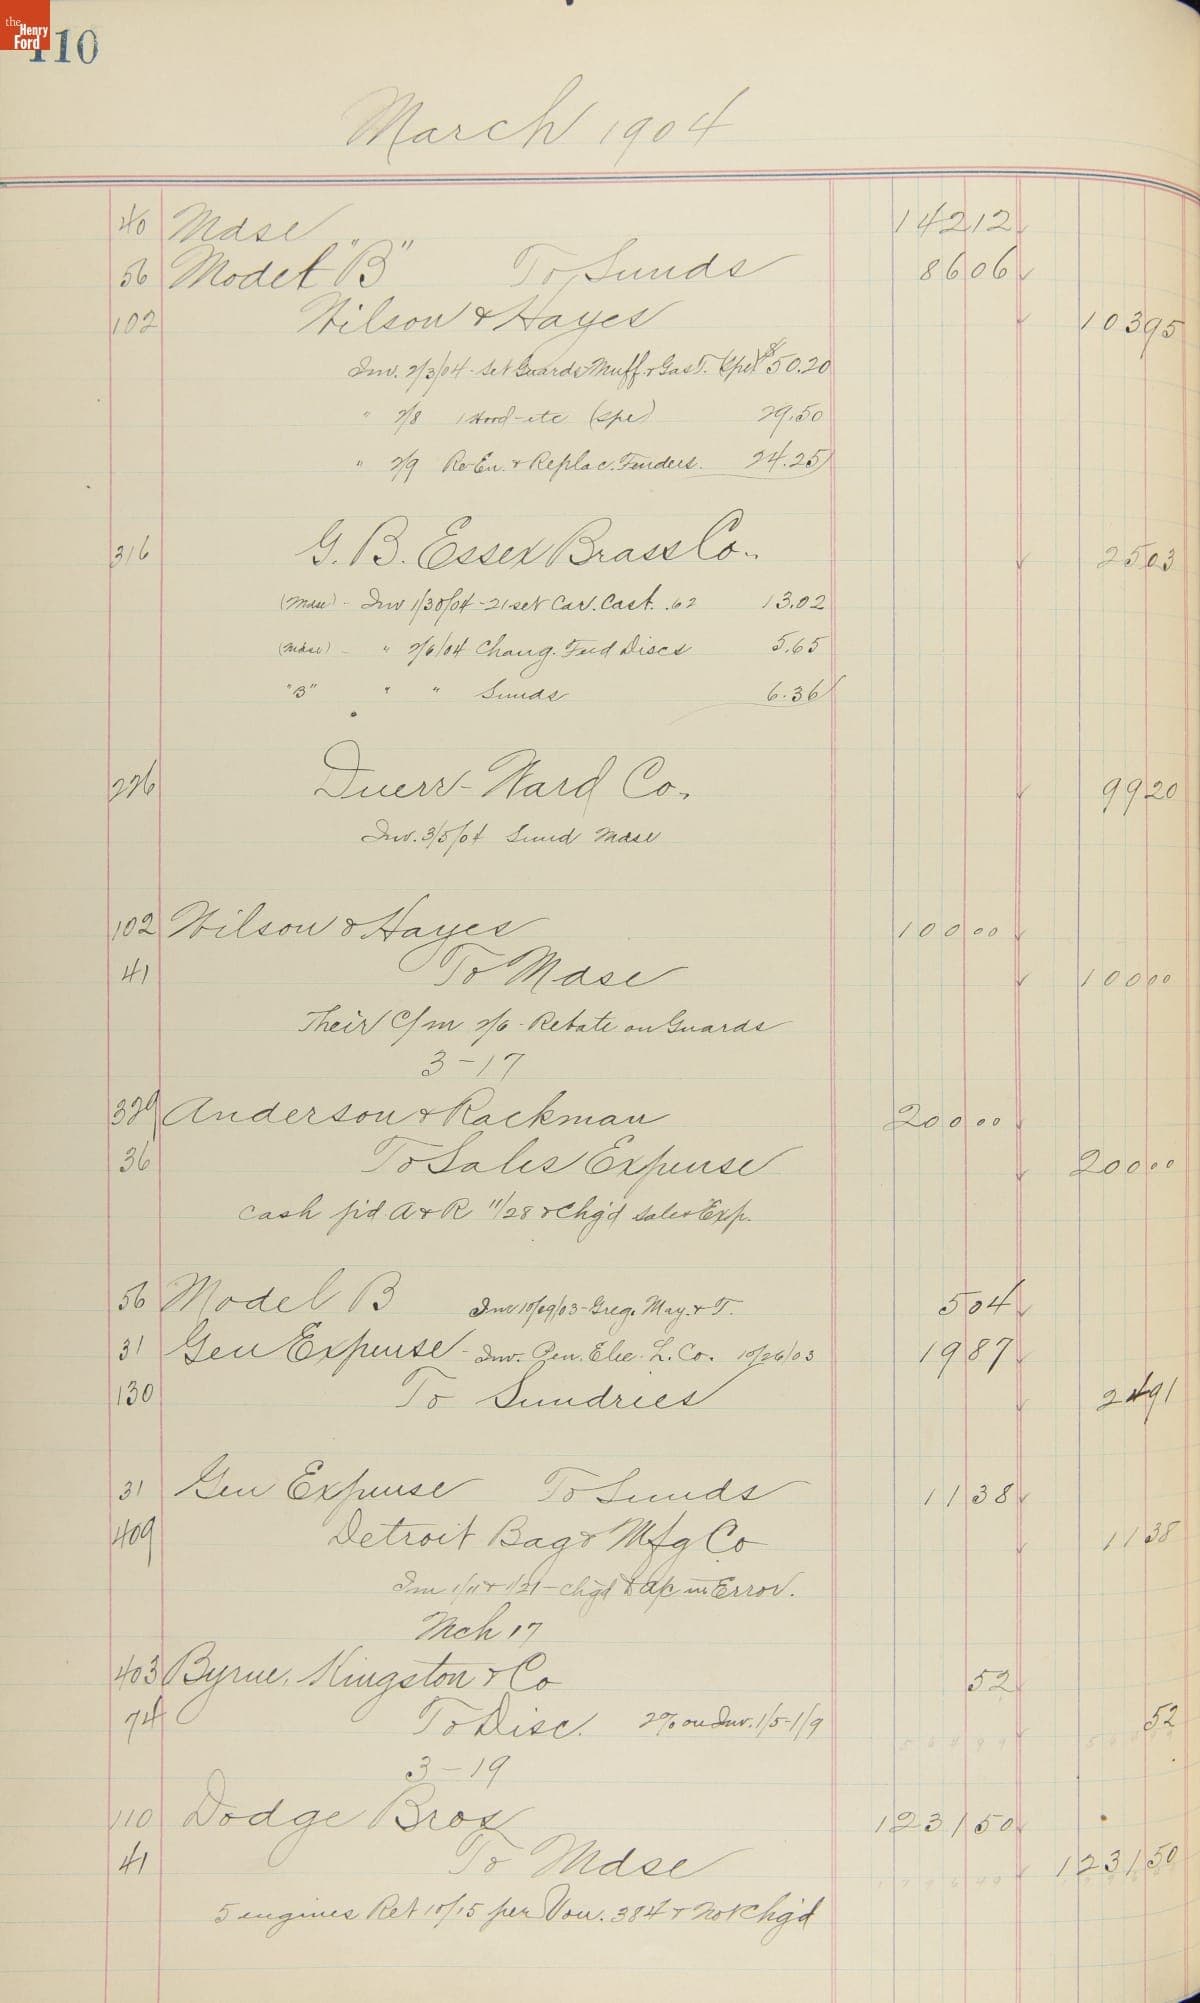 the Henry Ford
110
March 1904
40 Mdse 142 12
56 Model "B" To Sunds 86 06
102 Wilson & Hayes 103 95
Inv. 2/3/04 - Set Guards Muff. & Gas T. (Spe) $50.20
" 2/8 1 Hood - etc (Spe) 29.50
" 2/9 Re-En. & Replac. Fenders. 24.25
316 G. B. Essex Brass Co. 25 03
(Mdse) - Inv 1/30/04 - 21 set Car. Cast. .62 13.02
(Mdse) - " 2/6/04 Chang. Feed Discs 5.65
"B" " " Sunds 6.36
226 Duerr-Ward Co. 99 20
Inv. 3/5/04 Sund Mdse
102 Wilson & Hayes 100 00
41 To Mdse 100 00
Their C/m 2/6 - Rebate on Guards
3-17
329 Anderson & Rackman 200 00
36 To Sales Expense 200 00
Cash p'd A & R 11/28 & Chg'd Sales Exp.
56 Model B Inv 10/29/03 - Greg. May. & T. 5 04
31 Gen Expense - Inv. Gen. Elec. L. Co. 10/26/03 19 87
130 To Sundries 24 91
31 Gen Expense To Sunds 11 38
409 Detroit Bag & Mfg Co 11 38
Inv 1/11 & 1/21 - Chg'd in Error.
Mch 17
403 Byrne, Kingston & Co 52
74 To Disc. 2% on Inv. 1/5 - 1/9 52
3-19
110 Dodge Bros 1231 50
41 To Mdse 1231 50
5 engines Ret 10/15 per Vou. 384 & not Chg'd